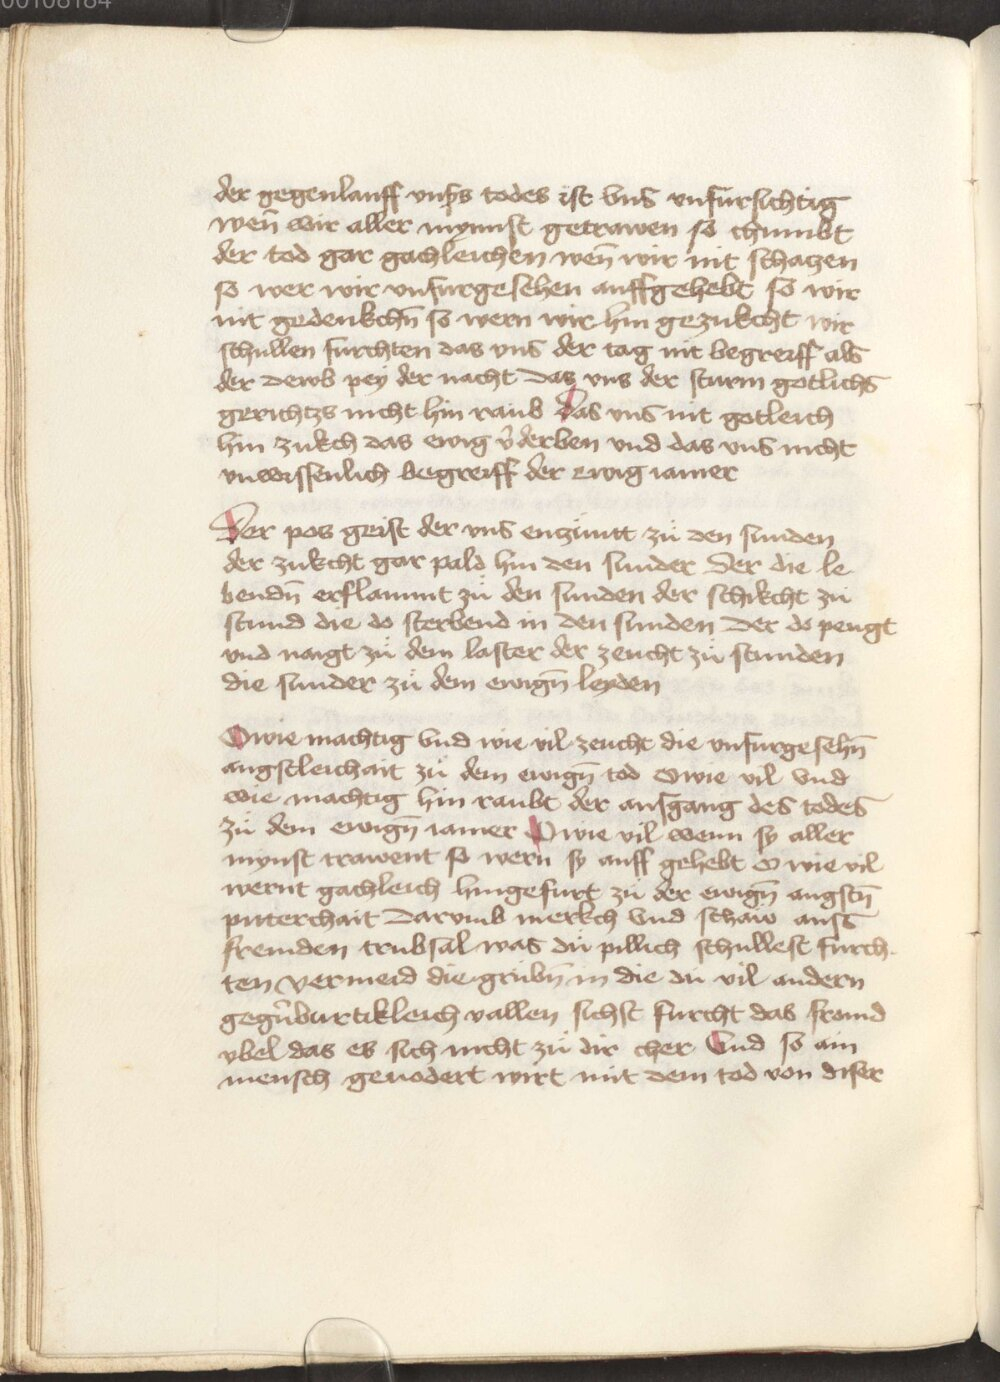 00108184
der gegenlauff vnsꝰs todes ist vns vnfursichtig
wen̄ wir aller mynnst getrawen so chumbt
der tod gar gachleichen wen̄ wir nit schatzen
so wer wir vnfurgesehen auffgehebt so wir
nit gedenkchn̄ so wern wir hin gezukcht wir
schullen furchten das vns der tag nit begreiff als
der dewb pey der nacht das vns der sturm gotlichs
gerichtzs nicht hin raub Das vns nit gotleich
hin zukch das ewig v̄derben vnd das vns nicht
vnwissenlich begreiff der ewig iamer
Der pos geist der vns enzuntt zu den sunden
der zukcht gar pald hin den sunder Der die le
bendn̄ erflammt zu den sunden der schikcht zu
stund die do sterbend in den sunden Der do pengt
vnd naigt zu dem laster der zeucht zu stunden
die sunder zu dem ewign̄ leyden
O wie machtig vnd wie vil zeucht die vnfurgesehn̄
angstleichait zu dem ewign̄ tod O wie vil vnd
wie machtig hin raubt der ausgang des todes
zu dem ewign̄ iamer O wie vil wenn sy aller
mynst trawent so wern sy auff gehebt O wie vil
wernt gachleich hingefurt zu der ewign̄ angstn̄
pitterchait Darvmb merkch vnd schaw auss
fremden trubsal was du pillich schullest furch
ten vermeid die grubn̄ in die du vil andern
gegn̄burtikleich vallen sichst furcht das fromd
vbel das es sich nicht zu dir cher Vnd so ain
mensch geuodert wirt mit dem tod von diser